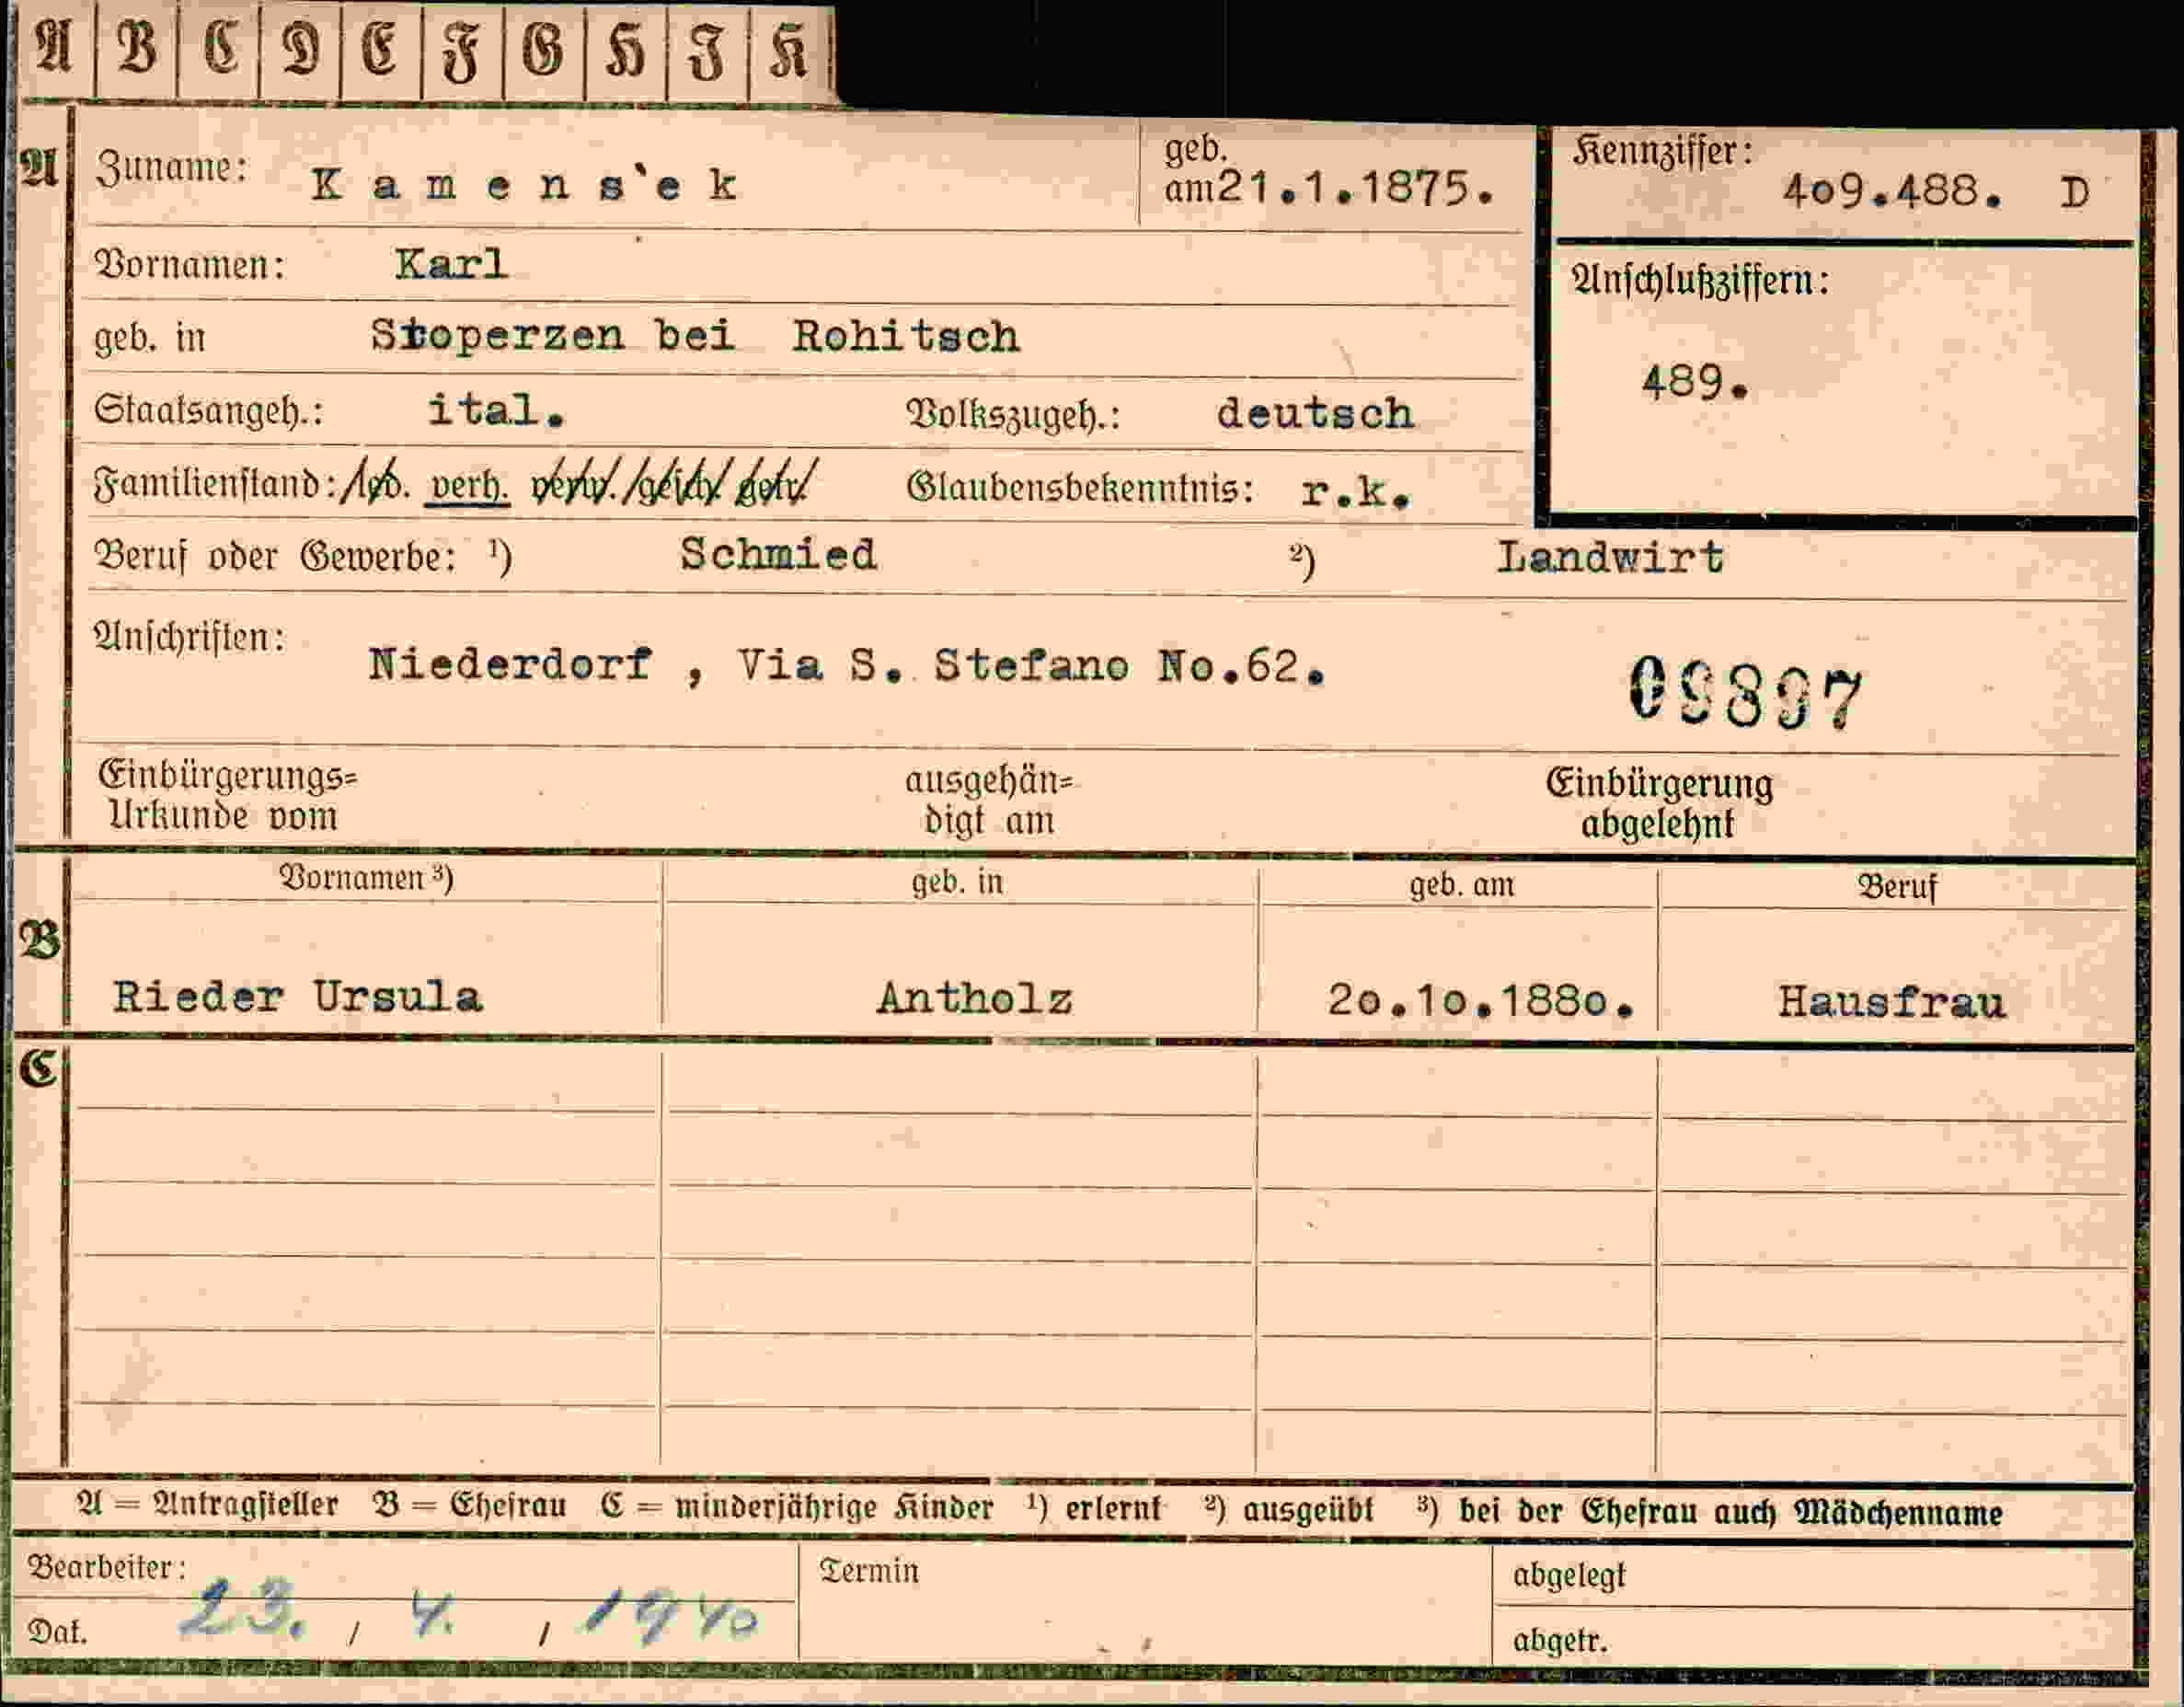 A B C D E F G H I K
A Zuname: Kamens`ek geb. am 21.1.1875. Kennziffer: 4o9.488. D
Vornamen: Karl
geb. in Stoperzen bei Rohitsch Anschlußziffern: 489.
Staatsangeh.: ital. Volkszugeh.: deutsch
Familienstand: led. verh. verw. gesch. getr. Glaubensbekenntnis: r.k.
Beruf oder Gewerbe: ¹) Schmied ²) Landwirt
Anschriften: Niederdorf , Via S. Stefano No.62. 09897
Einbürgerungs= ausgehän= Einbürgerung
Urkunde vom digt am abgelehnt
Vornamen ³) geb. in geb. am Beruf
B Rieder Ursula Antholz 2o.1o.188o. Hausfrau
C
A = Antragsteller B = Ehefrau C = minderjährige Kinder ¹) erlernt ²) ausgeübt ³) bei der Ehefrau auch Mädchenname
Bearbeiter: Termin abgelegt
Dat. 23. / 4. / 1940 abgetr.